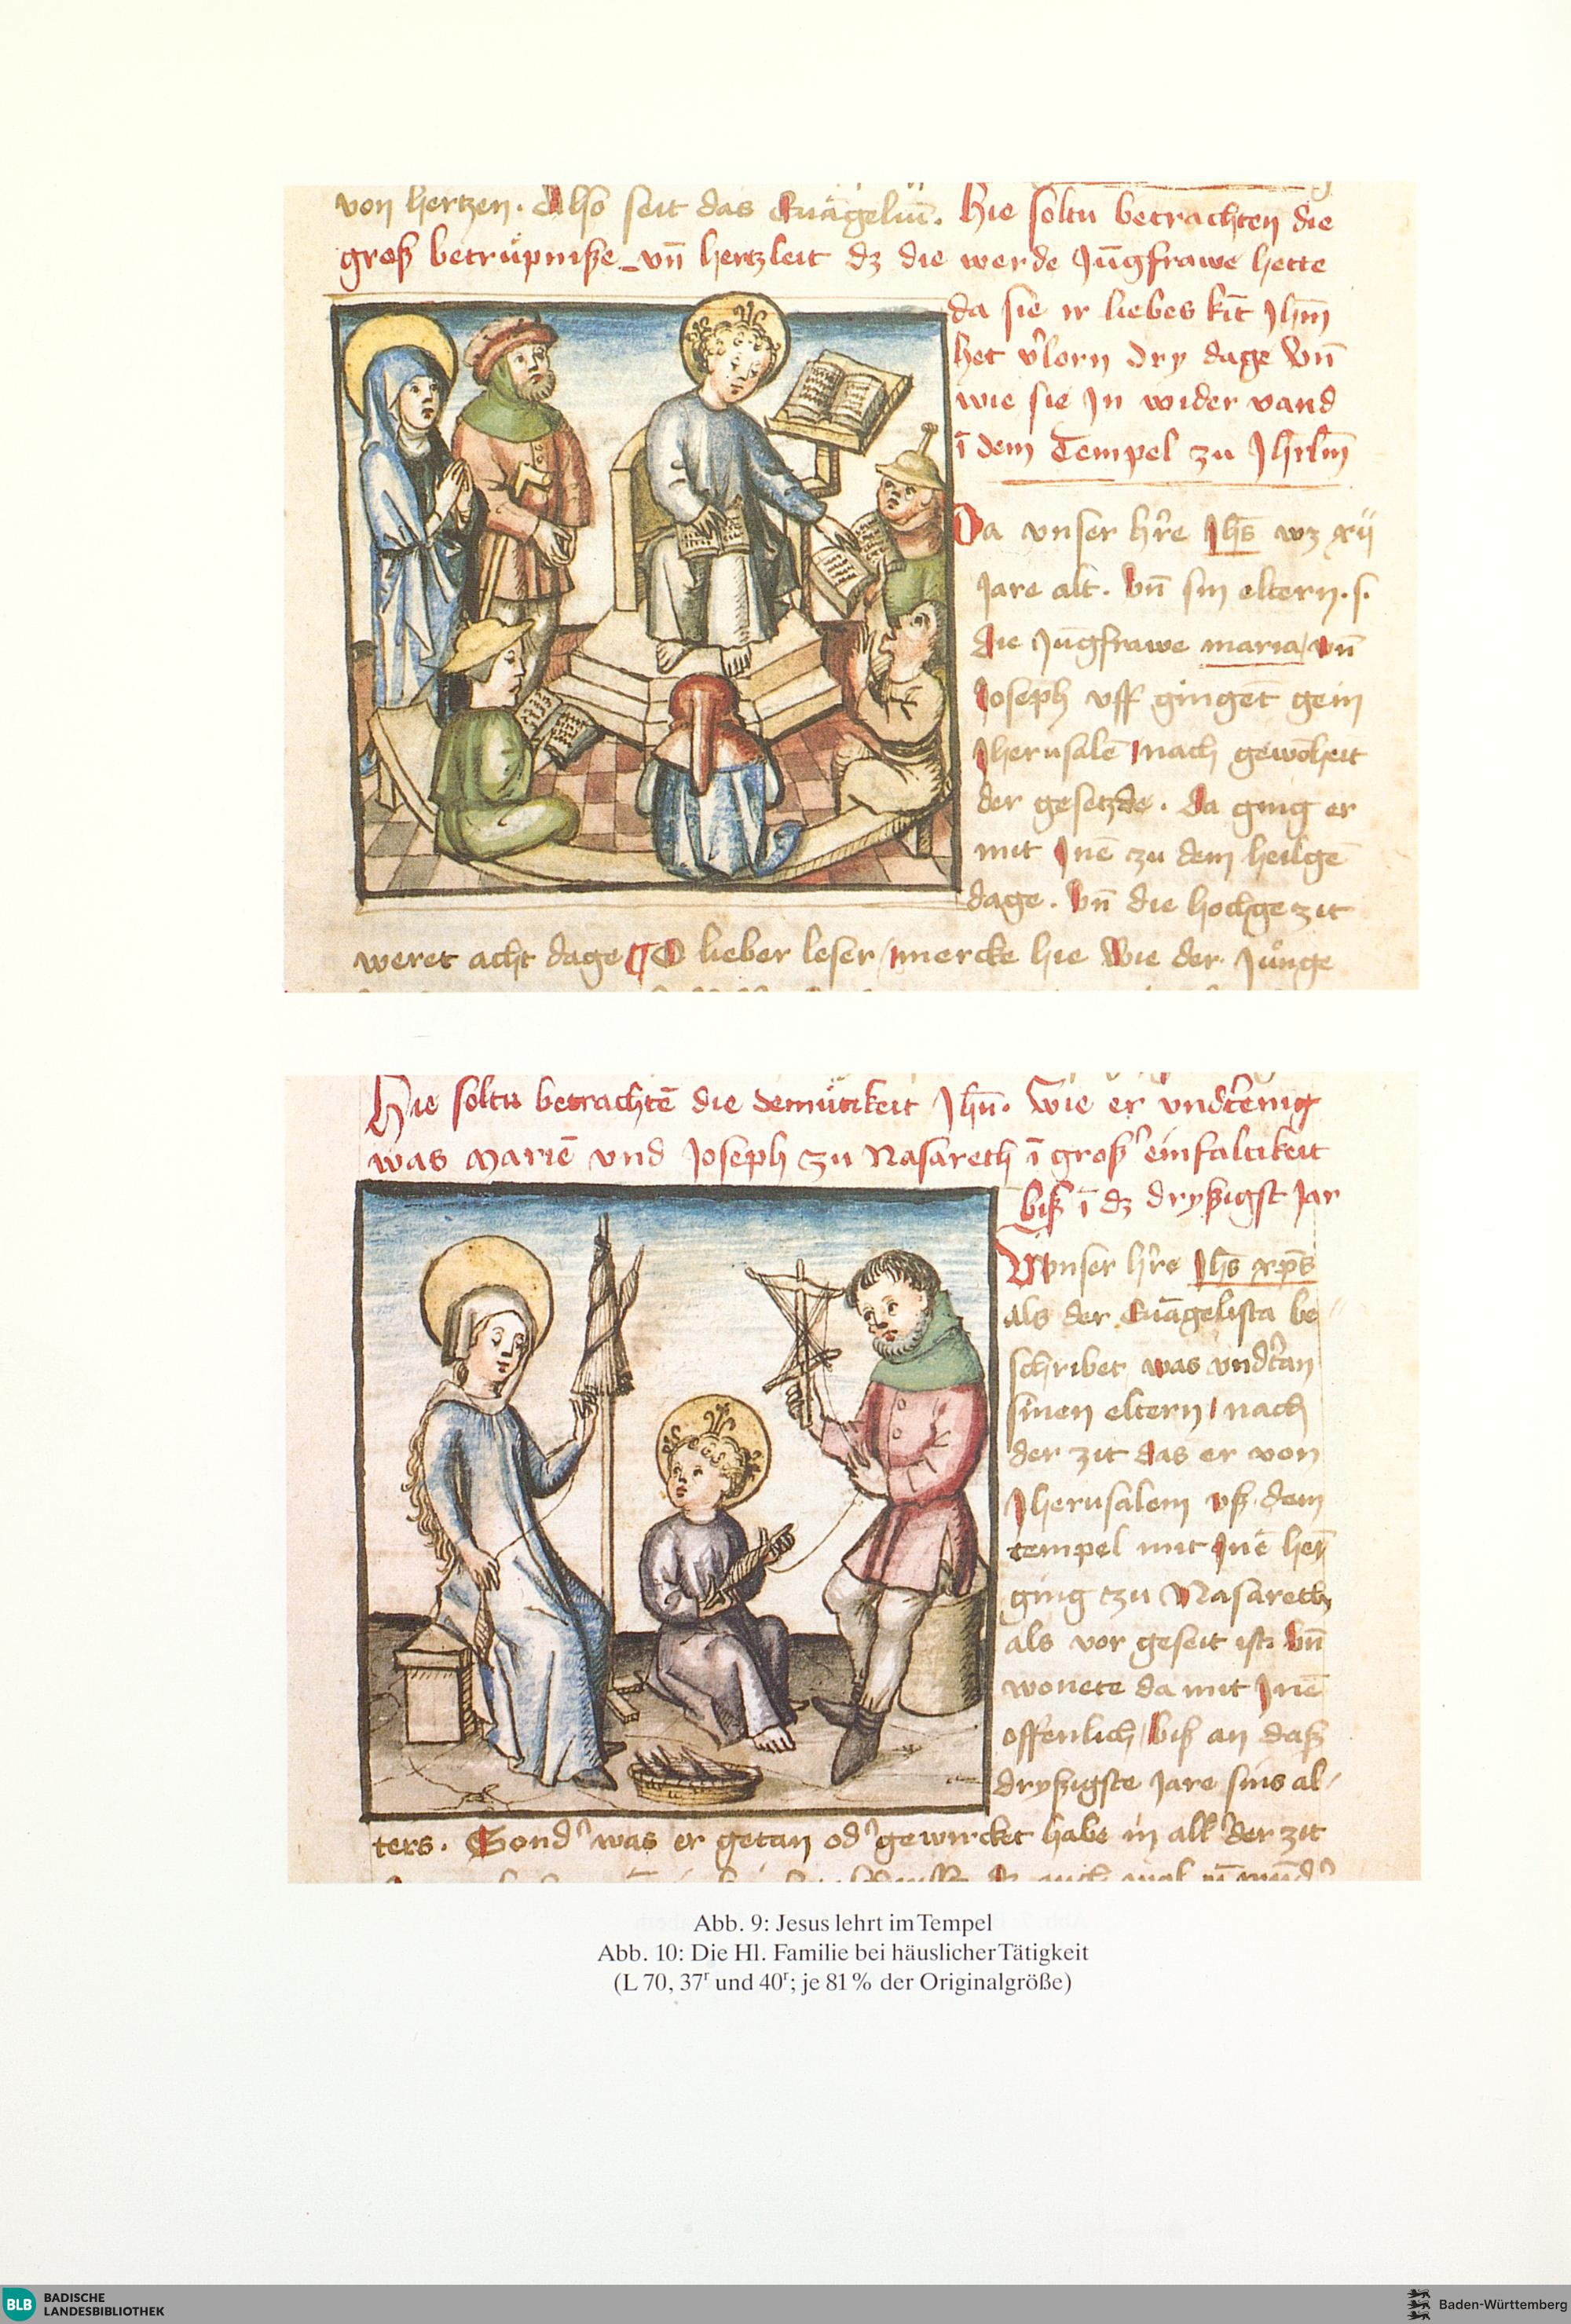 von hertzen. Also seit das Euāgeliū. Hie soltu betrachten die
groß betrüpniße vn̄ hertzleit dz die werde Jūgfrawe hette
da sie ir liebes kīt Jhm̄
het v'lorn dry dage Vn̄
wie sie Jn wider vand
ī dem Tempel zu Jhrlm̄
Da vnser h're Jhs̄ wz xij
Jare alt. Vn̄ sin eltern. s.
die Jūgfrawe maria / vn̄
Joseph vff gingēt gein
Jherusalē / nach gewōheit
der gesetzde. Da ging er
mit Jnē zu dem heilgē
dage. Vn̄ die hochgezit
weret acht dage ¶ O lieber leser / mercke hie Wie der Jůnge
Hie soltu betrachtē die demütikeit Jhū. Wie er vndt'enig
was Mariē vnd Joseph zu Nasareth ī groß' einfaltikeit
biß ī dz dryßigst Jar
Vnser h're Jhs̄ xp̄s
als der Euāgelista be
schribet was vndt'an
sinen eltern / nach
der zit das er von
Jherusalem vß dem
tempel mit Jnē hen̄
ging tzu Nasareth
als vor geseit ist Vn̄
wonete da mit Jnē
offenlich / biß an daß
dryßigste Jare sins al-
ters. Sond' was er getan od' gewircket habe in all' der zit
Abb. 9: Jesus lehrt im Tempel
Abb. 10: Die Hl. Familie bei häuslicher Tätigkeit
(L 70, 37ʳ und 40ʳ; je 81 % der Originalgröße)
BLB BADISCHE
LANDESBIBLIOTHEK
Baden-Württemberg